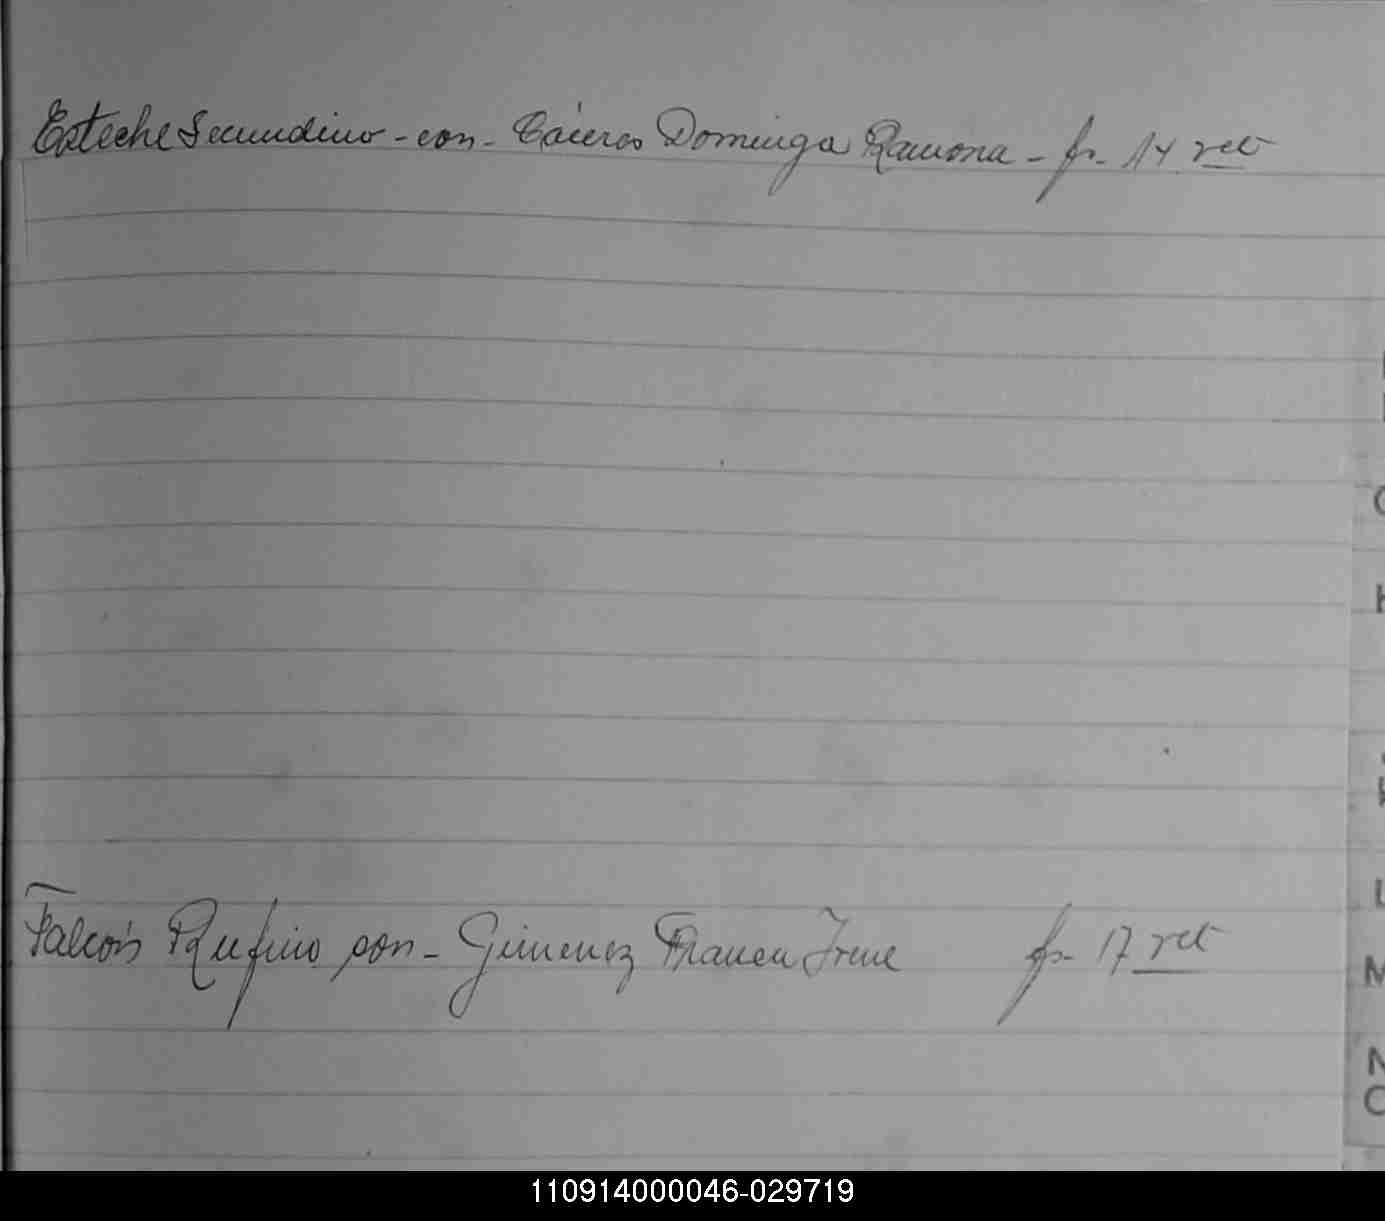 Esteche Secundino - con - Cáceres Dominga Ramona - fs. 14 vct
Falcón Rufino con - Gimenez Franca Irene fs. 17 vct
H
L
M
N
O
110914000046-029719